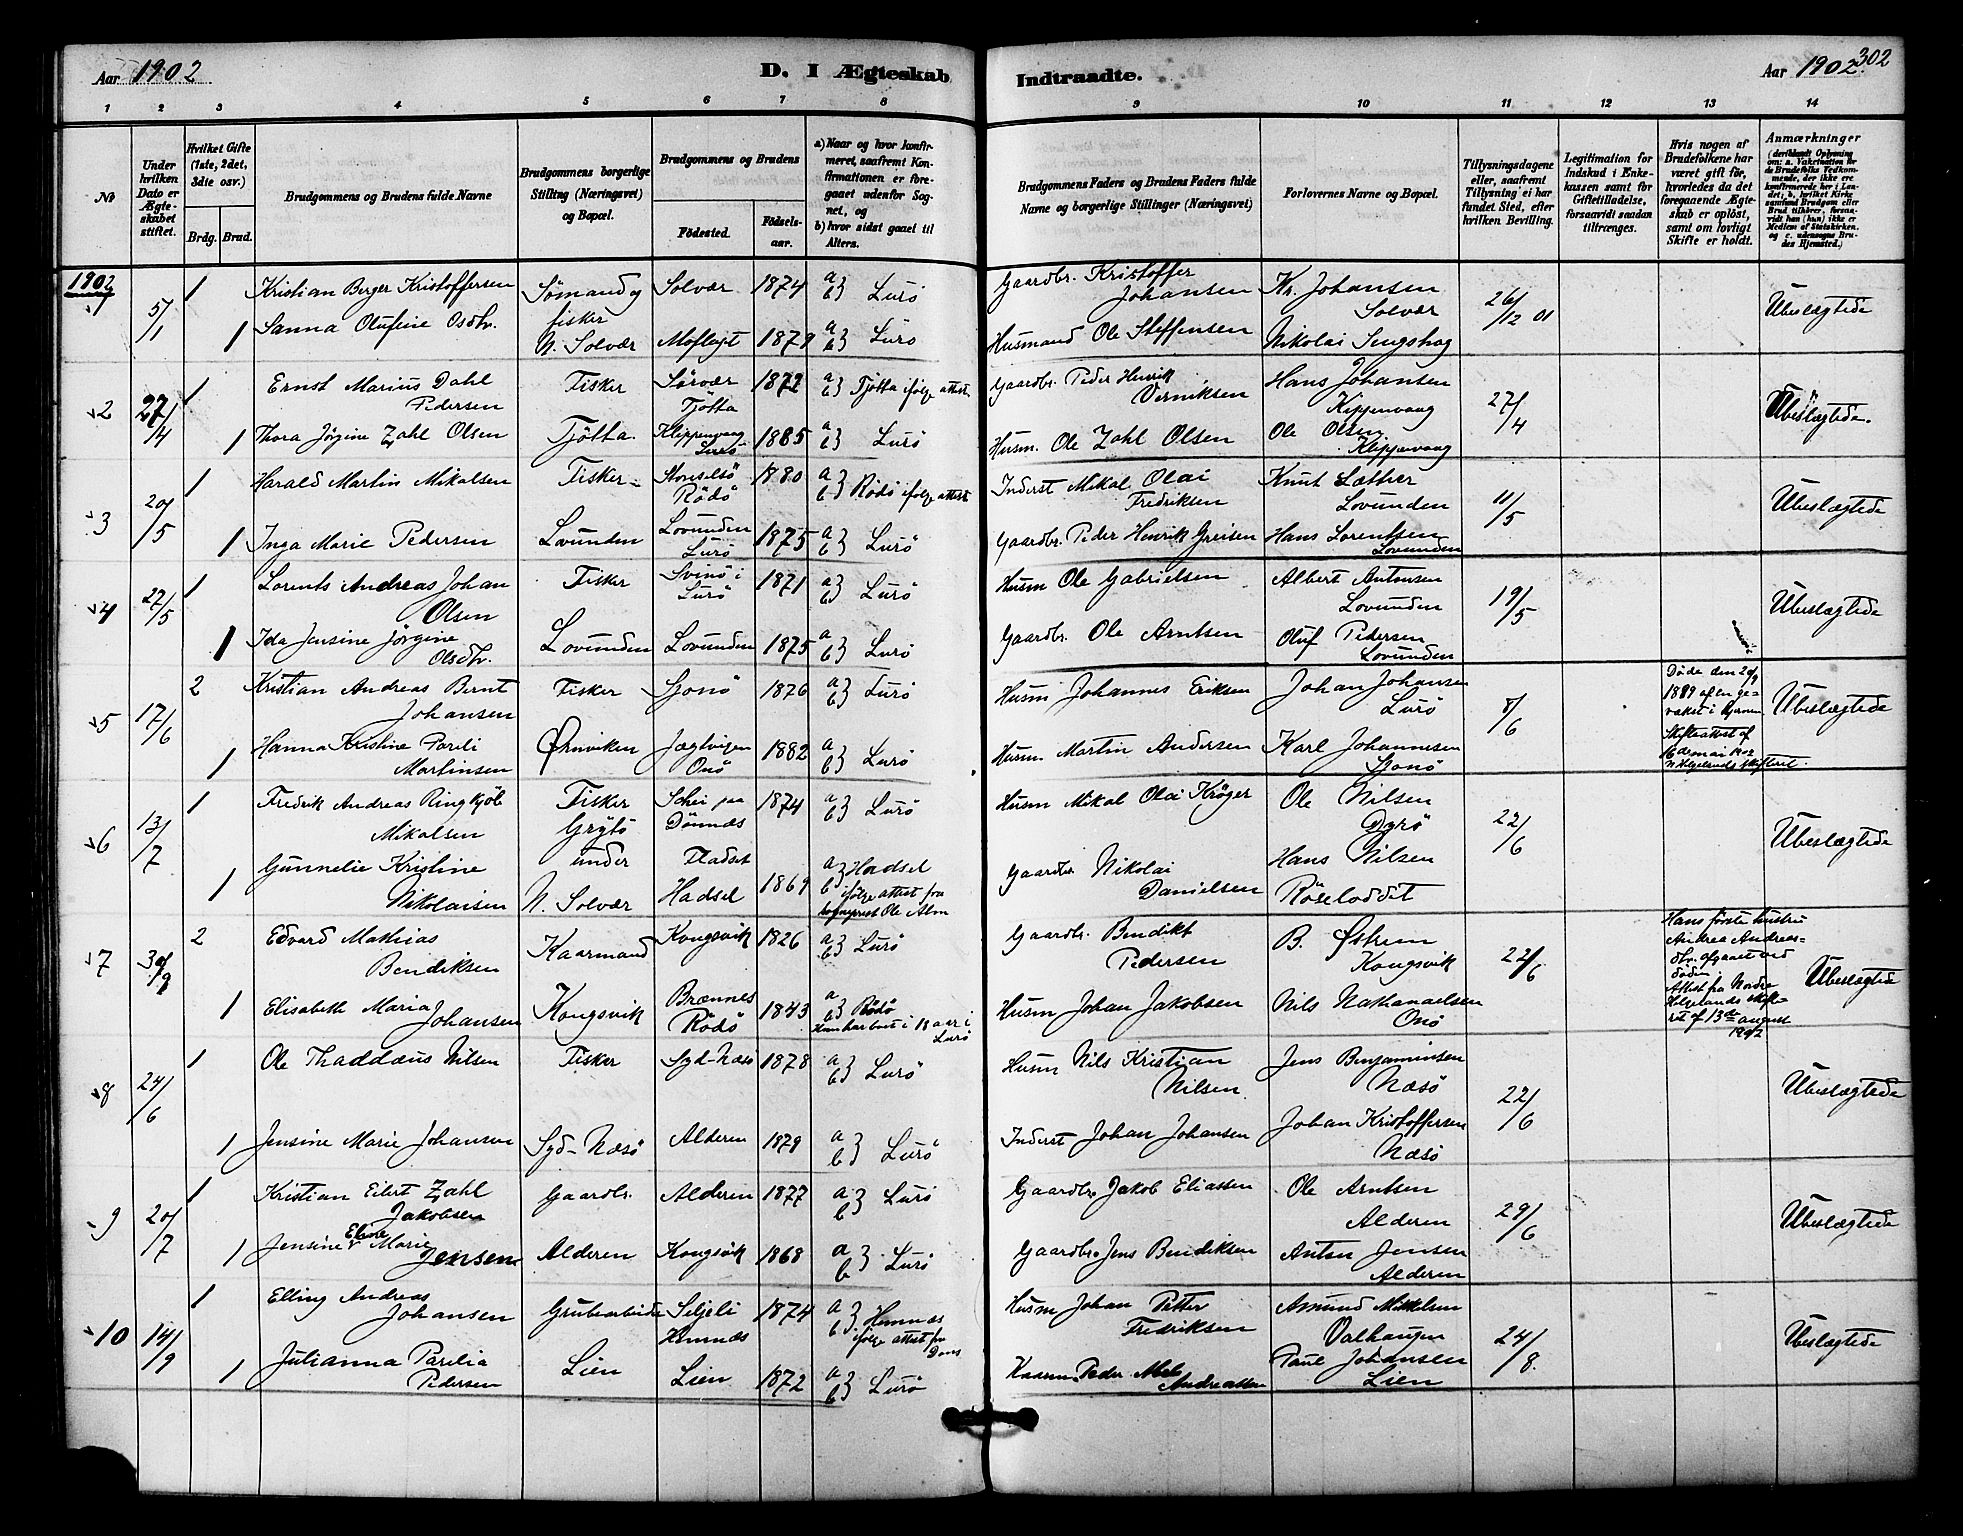 Aar 1902
D. I Ægteskab
Indtraadte.
Aar 1902.
302
1 2 3 4 5 6 7 8 9 10 11 12 13 14
№
Under hvilken Dato er Ægteskabet stiftet.
Hvilket Gifte (1ste, 2det, 3die osv.)
Brdg. Brud.
Brudgommens og Brudens fulde Navne
Brudgommens borgerlige Stilling (Næringsvei) og Bopæl.
Brudgommens og Brudens
Födested.
Födselsaar.
a) Naar og hvor konfirmeret, saafremt Konfirmationen er foregaaet udenfor Sognet, og
b) hvor sidst gaaet til Alters.
Brudgommens Faders og Brudens Faders fulde Navne og borgerlige Stillinger (Næringsvei)
Forlovernes Navne og Bopæl.
Tillysningsdagene eller, saafremt Tillysning ei har fundet Sted, efter hvilken Bevilling.
Legitimation for Indskud i Enkekassen samt for Giftetilladelse, forsaavidt saadan tiltrænges.
Hvis nogen af Brudefolkene har været gift før, hvorledes da det foregaaende Ægteskab er oplöst, samt om lovligt Skifte er holdt.
Anmærkninger
1902
1 5/1 1 Kristian Berger Kristoffersen Sømand og Solvær 1874 a b} Lurö Gaardbr. Kristoffer Johansen Kr. Johansen Solvær 26/12 01 Ubeslægtede
1 Sanna Olufine Osdtr. fisker N. Solvær Moflaget 1879 a b} Lurö Husmand Ole Steffensen Nikolai
2 27/4 1 Ernst Marius Dahl Pedersen Fisker Sörvær Tjötta 1872 a b} Tjötta ifølge attest Gaardbr. Peder Henrik Hans Johansen 27/4 Ubeslægtede.
1 Thora Jörgine Zahl Olsen Tjötta. Klippenvaag Lurö 1885 a b} Lurö Husm. Ole Zahl Olsen Ole Olsen Klippenvaag
3 20/5 1 Harald Martin Mikalsen Fisker Rödö 1880 a b} Rödö ifølge attest Inderst Mikal Olai Fredriksen Knut Lother Lovunden 11/5 Ubeslægtede
1 Inga Marie Pedersen Lovunden Lovunden Lurö 1875 a b} Lurö Gaardbr. Peder Henrik Greisen Hans Lorentsen Lovunden
4 27/5 1 Lorents Andreas Johan Olsen Fisker Svinö i Lurö 1871 a b} Lurö Husm Ole Gabrielsen Albert Antonsen Lovunden 19/5 Ubeslægtede
1 Ida Jensine Jörgine Olsdtr. Lovunden Lovunden 1875 a b} Lurö Gaardbr. Ole Arntsen Oluf Pedersen Lovunden
5 17/6 2 Kristian Andreas Bernt Johansen Fisker Sjonö 1876 a b} Lurö Husm Johannes Eriksen Johan Johansen Lurö 8/6 Døde den Skifteattest af 16de mai 1902 Ubeslægtede
1 Hanna Kristine Pareli Martinsen Ørnviken Jægtvigen Onö 1882 a b} Lurö Husm. Martin Andersen Karl Johannesen Sjonö
6 13/7 1 Fredrik Andreas Ringkjöb Mikalsen Fisker Grytö Dönnæs 1874 a b} Lurö Husm Mikal Olai Kröger Ole Nilsen Dyrö 22/6 Ubeslægtede
1 Gunnelie Kristine Nikolaisen under N. Solvær Hadsel 1869 a b} Hadsel ifølge attest fra sogneprest Ole Alm Gaardbr. Nikolai Danielsen Hans Nilsen
7 2 Edvard Mathias Bendiksen Kaarmand Kongsvik 1826 a b} Lurö Gaardbr. Bendikt Pedersen B. Østrem Kongsvik 22/6 Hans første hustru Andrea Andreasdtr. afgaaet ved døden Attest fra Nordre Helgelands skifteret af 13de august 1902 Ubeslægtede
1 Elisabeth Maria Johansen Kongsvik Rödö 1843 a b} Rödö Husm Johan Jakobsen Nils Nathanaelsen Onö
8 24/6 1 Ole Thaddæus Nilsen Fisker Syd-Næsö 1878 a b} Lurö Husm Nils Kristian Nilsen Jens Benjaminsen Næsö 22/6 Ubeslægtede
1 Jensine Marie Johansen Syd-Næsö Alderen 1879 a b} Lurö Inderst Johan Johansen Johan Kristoffersen Næsö
9 20/7 1 Kristian Eilert Zahl Jakobsen Gaardbr. Alderen 1877 a b} Lurö Gaardbr. Jakob Eliassen Ole Arntsen Alderen 29/6 Ubeslægtede
1 Jensine Marie Jensen Alderen Kongsvik 1868 a b} Lurö Gaardbr. Jens Bendiksen Anton Jensen Alderen
10 14/9 1 Elling Andreas Johansen Grubearbeider Seljeli Hemnæs 1874 a b} Hemnæs ifølge attest fra Husm Johan Petter Fredriksen Amund Mikkelsen 24/8. Ubeslægtede
1 Julianna Parelia Pedersen Lien Lien 1872 a b} Lurö Kaarm. Peder Andreassen Paul Johansen Lien